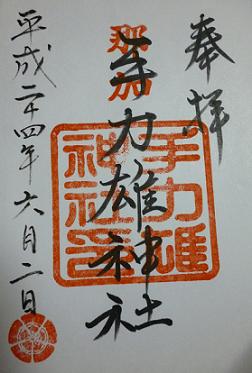 奉拝
那加
手力雄神社
手力雄神社印
平成二十四年六月二日